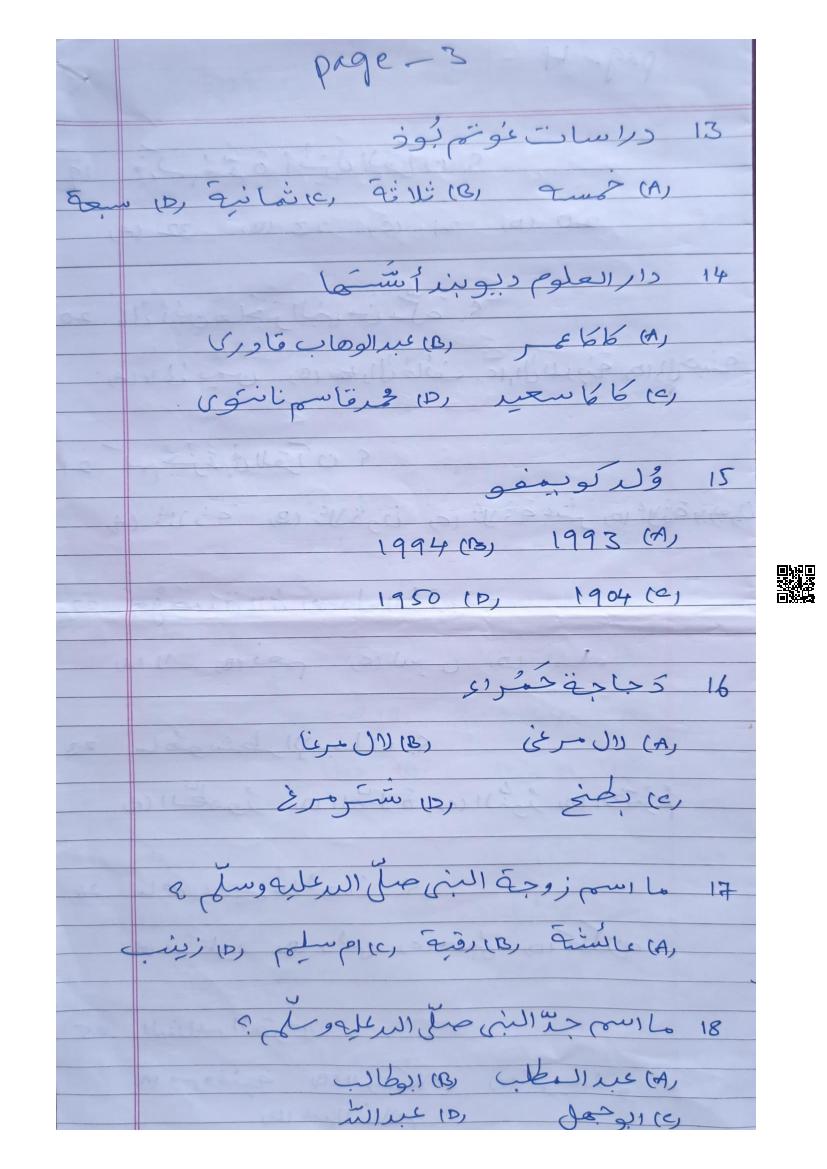 page - 3
13 دراسات غوتم بُوذ
(A) خمسه (B) ثلاثة (C) ثمانية (D) سبعة
14 دار العلوم ديوبند أسَّسَها
(A) كاكا عمر (B) عبدالوهاب قادرى
(C) كاكا سعيد (D) محمد قاسم نانتوى
15 وُلد كويمفو
(A) 1993 (B) 1994
(C) 1904 (D) 1950
16 دجاجة حَمْراء
(A) لال مرغى (B) لال مرغا
(C) بطخ (D) شتر مرغ
17 ما اسم زوجة النبى صلّى الله عليه وسلّم ؟
(A) عائشة (B) رقية (C) ام سليم (D) زينب
18 ما اسم جدّ النبى صلّى الله عليه وسلّم ؟
(A) عبد المطلب (B) ابوطالب
(C) ابوجهل (D) عبدالله